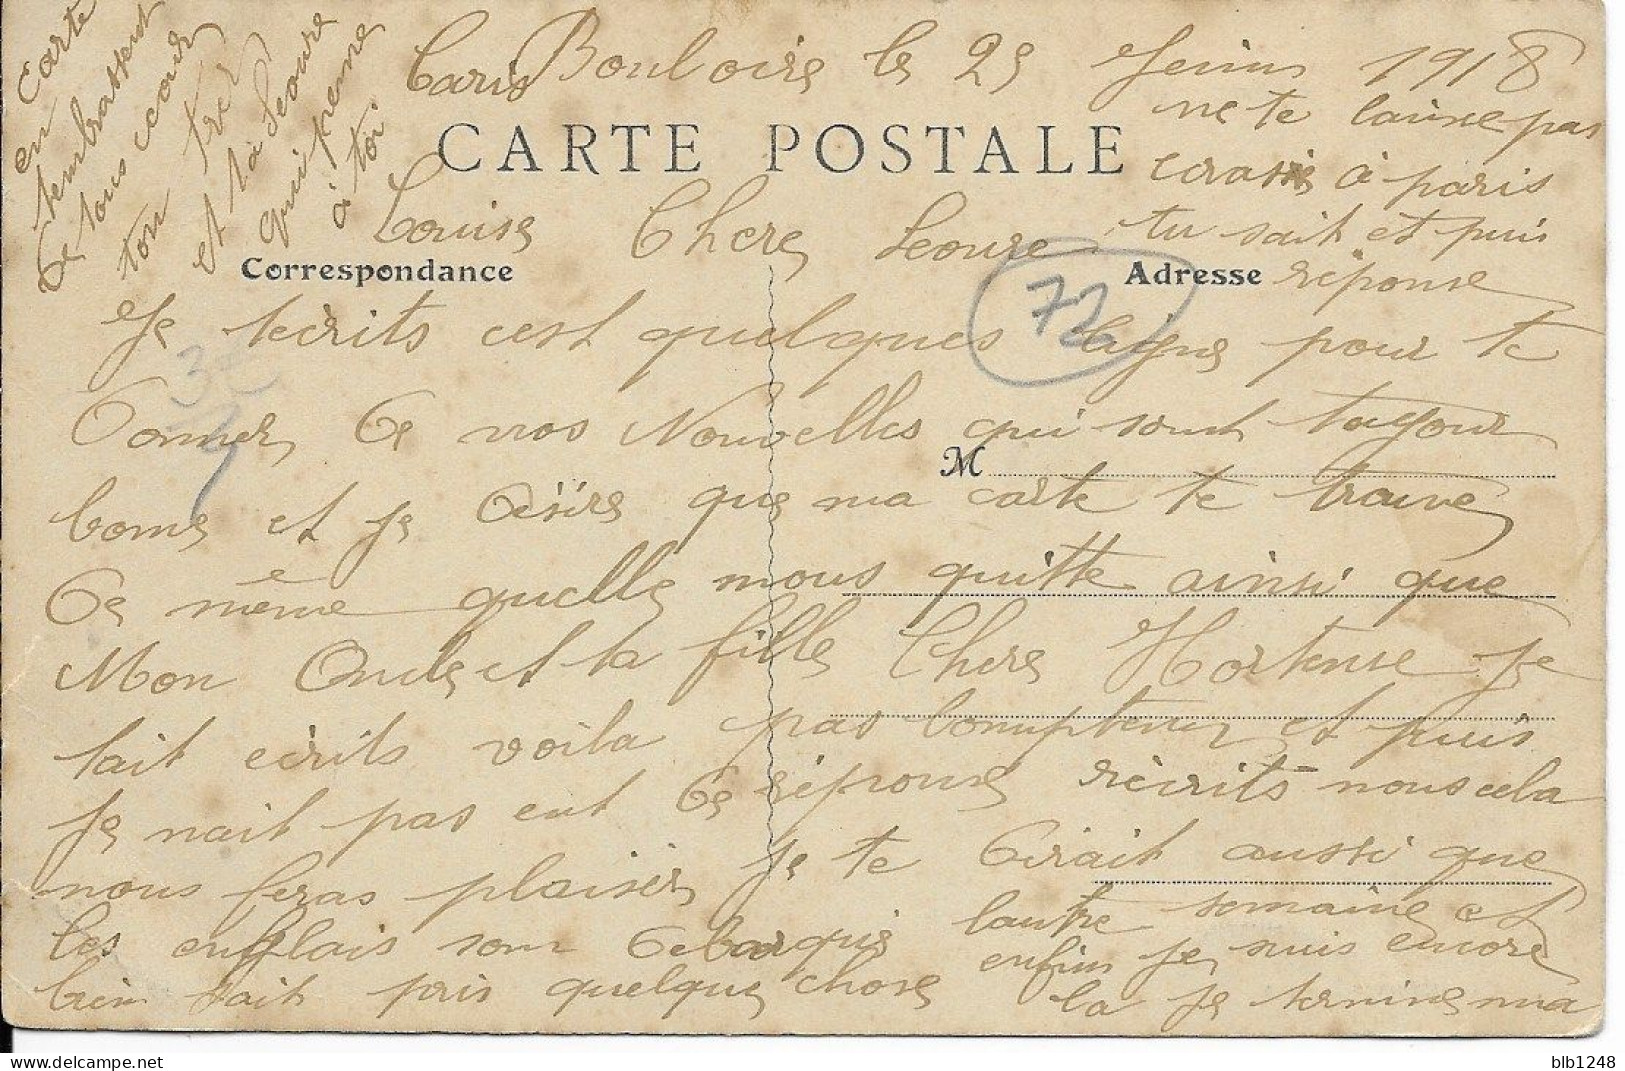 Bouloire le 25 1918
CARTE POSTALE
Louise Chere Seoure
Correspondance
Adresse
72
Je técrits cest quelques lignes pour te
Donner De nos Nouvelles qui sont toujour
M
bonne et je Désire que ma carte te trouve
De même quelle nous quitte ainsi que
Mon Oncle et ta fille Chere Hortense Je
tait ecrits voila pas longtemp et puis
Je nait pas eut De réponse récrits nous cela
nous feras plaisir Je te Dirait aussi que
les englais son Debarquer lautre semaine et
bien fait pris quelque chose enfin Je suis encore
la Je termine ma
carte
en
tembrassent
De tous cœur
ton
et ta Seoure
qui pense
à toi
ne te laisse pas
ecraser à paris
tu sait et puis
réponse
blb1248